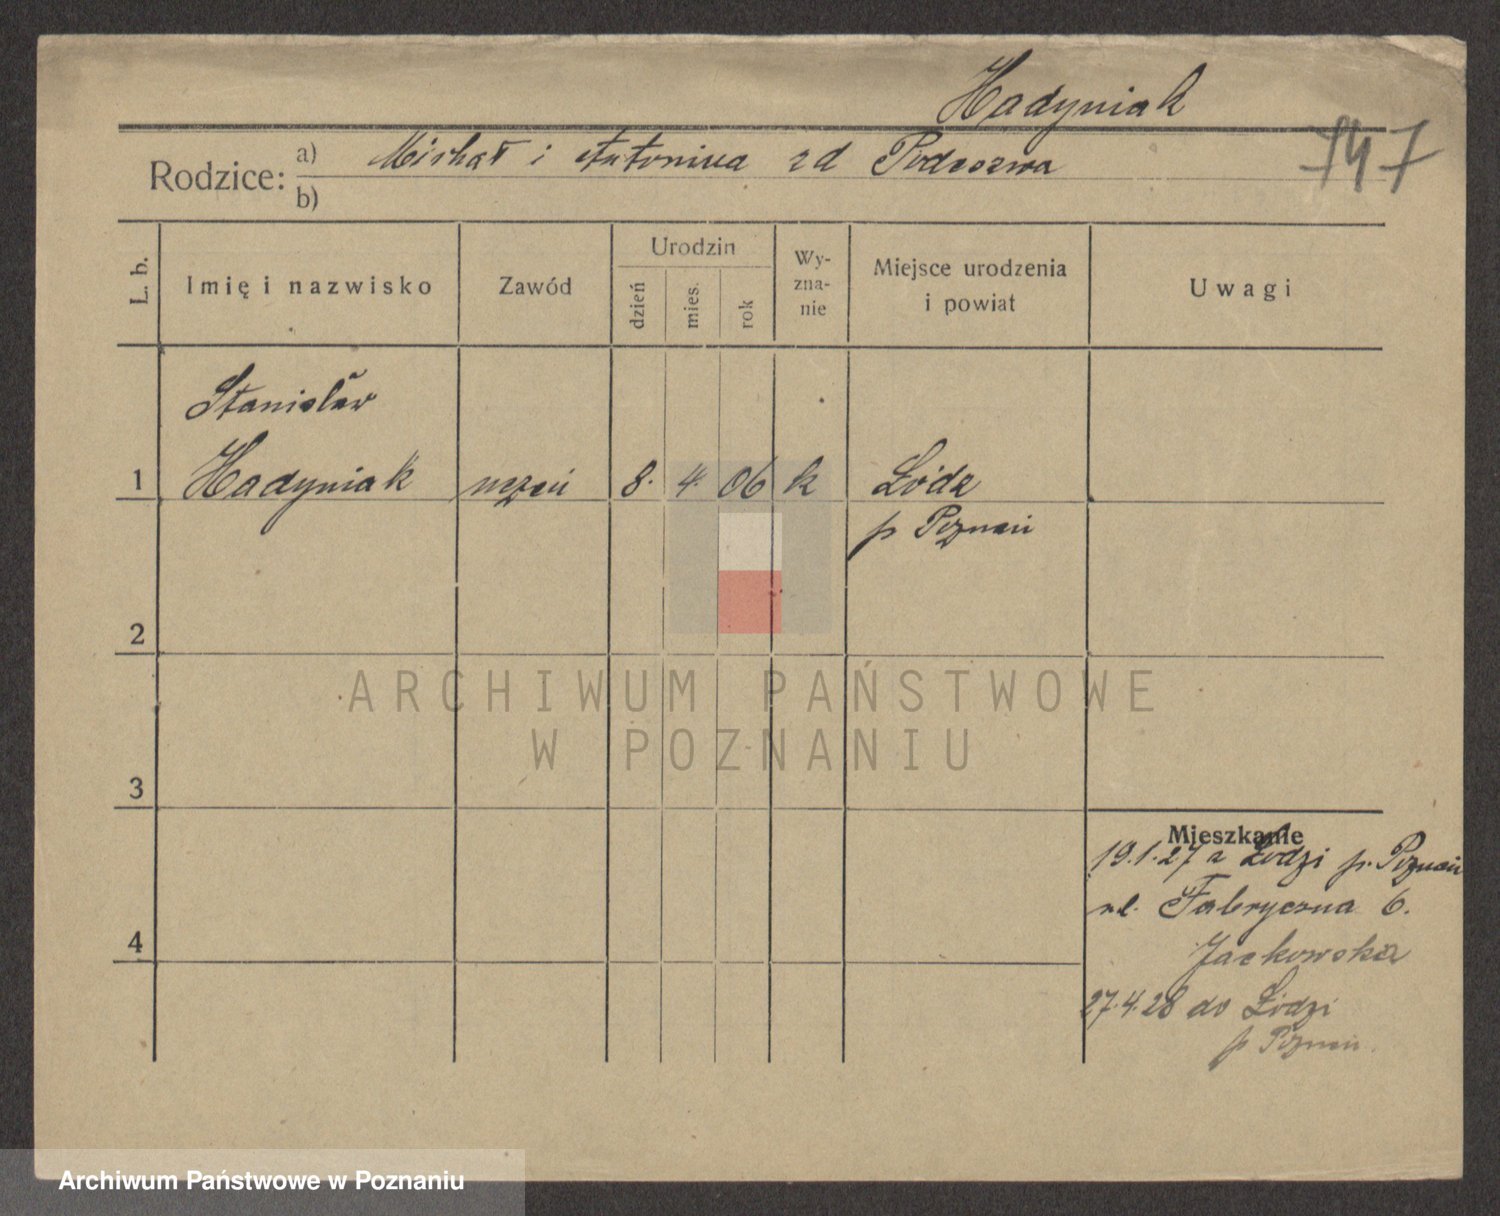 Hadyniak
747
Rodzice: a) Michał i Antonina zd Podeszwa
b)
L. b.
Imię i nazwisko
Zawód
Urodzin
dzień
mies.
rok
Wy-
zna-
nie
Miejsce urodzenia
i powiat
Uwagi
Stanisław
1 Hadyniak uczeń 8. 4. 06 k Łódz
p Poznań
2
3
4
Mieszkanie
19.1.27 z Łodzi p. Poznań
ul. Fabryczna 6.
Jackowska
27.4.28 do Łodzi
p Poznań
ARCHIWUM PAŃSTWOWE
W POZNANIU
Archiwum Państwowe w Poznaniu